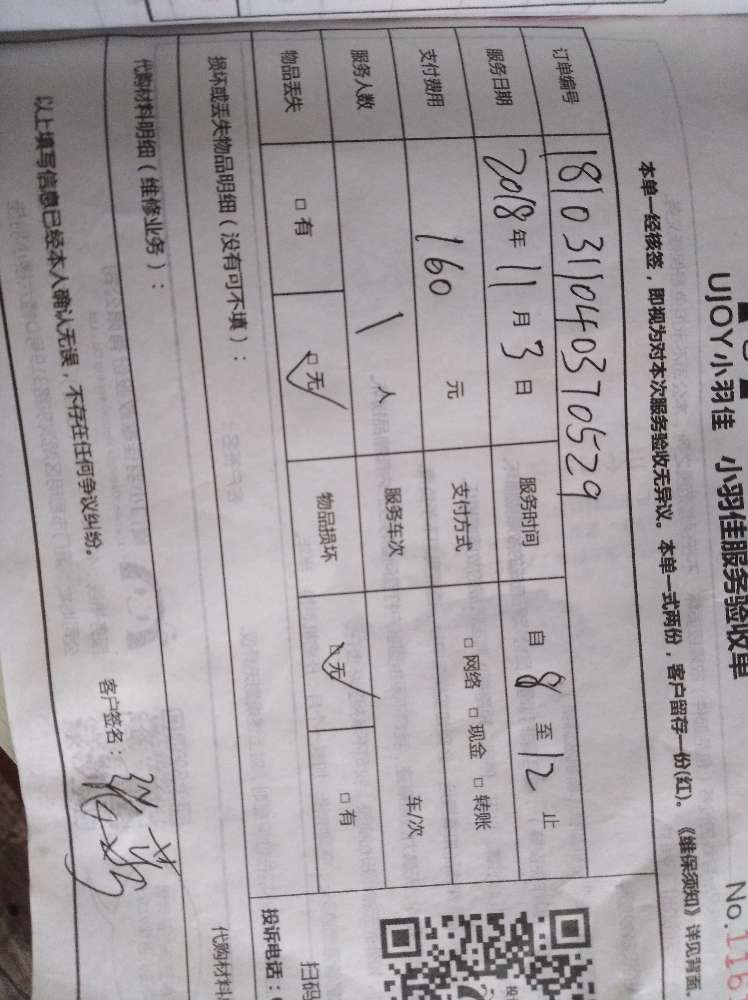 UJOY小羽佳 小羽佳服务验收单
No.116
本单一经核签，即视为对本次服务验收无异议。本单一式两份，客户留存一份(红)。《维保须知》详见背面。
订单编号 181031104070529
服务日期 2018年11月3日 服务时间 自8至12止
支付费用 160元 支付方式 □网络 □现金 □转账
服务人数 1人 服务车次 车/次
物品丢失 □有 □无 物品损坏 □无 □有
损坏或丢失物品明细（没有可不填）：
投诉电话：
扫码
代购材料明细（维修业务）：
代购材料
以上填写信息已经本人确认无误，不存在任何争议纠纷。 客户签名：